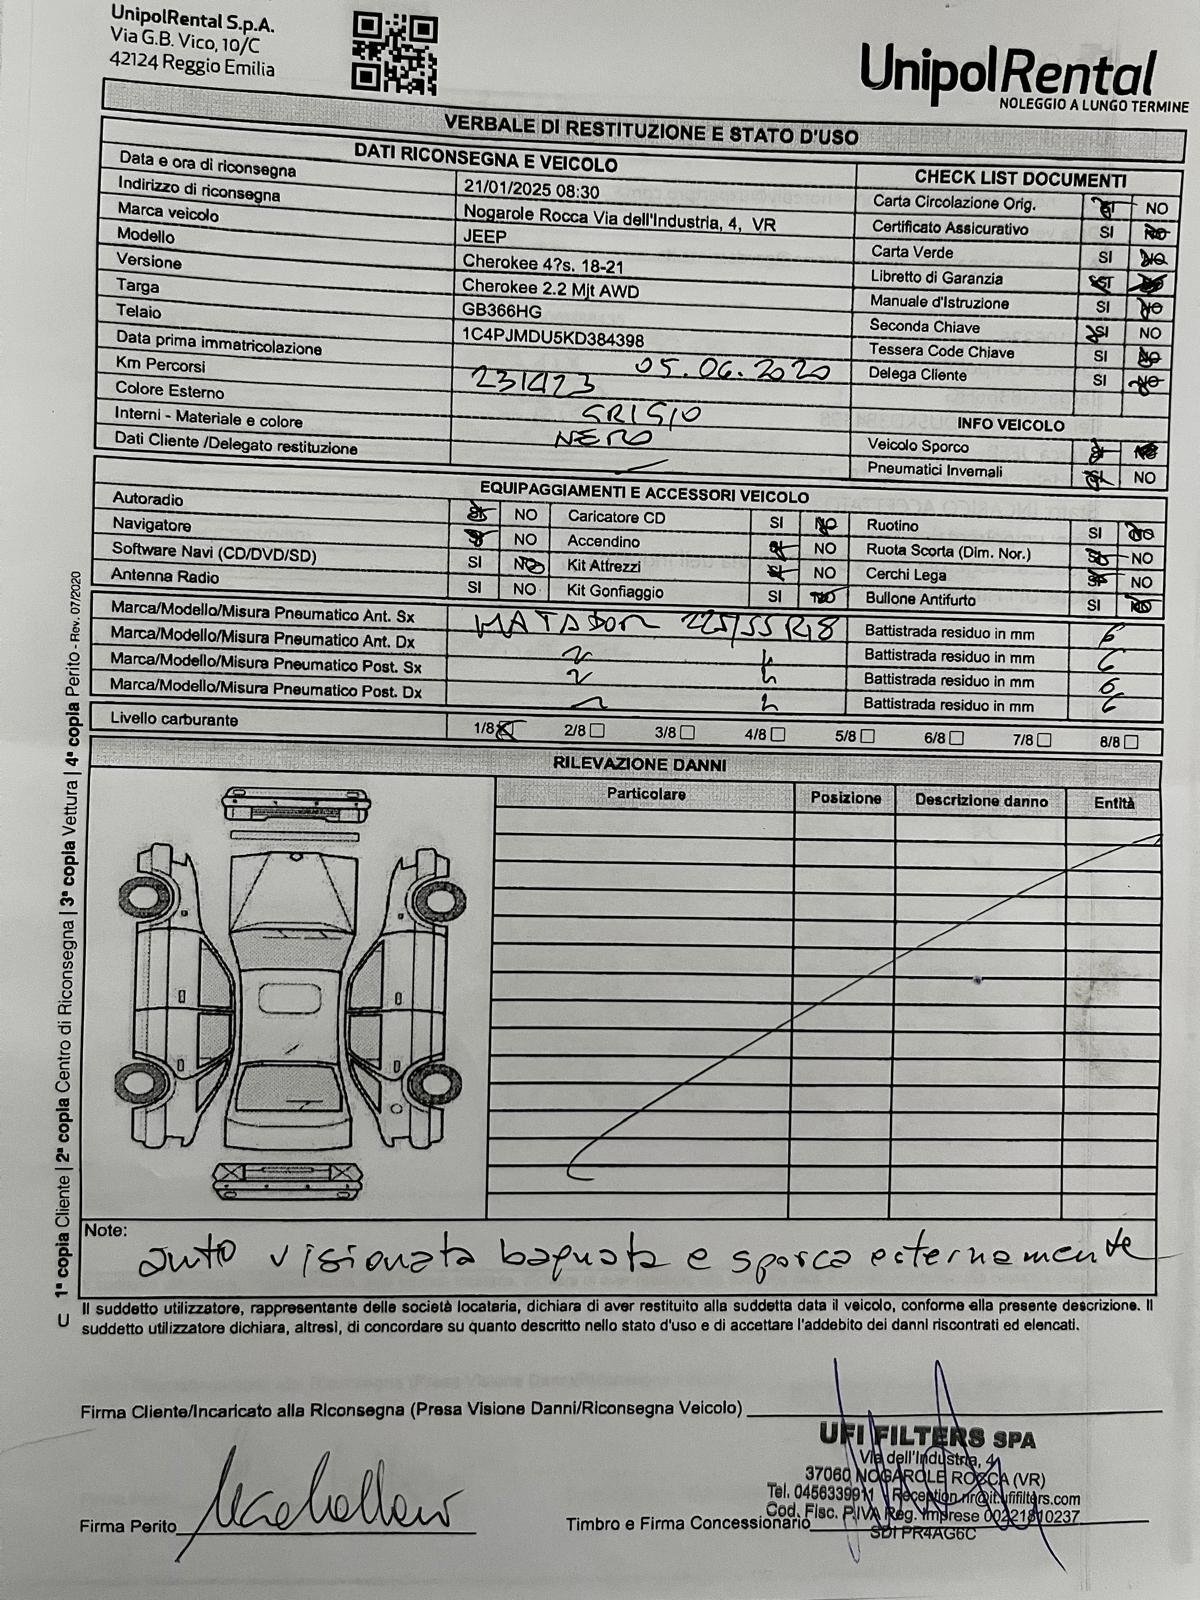 UnipolRental S.p.A.
Via G.B. Vico, 10/C
42124 Reggio Emilia
UnipolRental
NOLEGGIO A LUNGO TERMINE
VERBALE DI RESTITUZIONE E STATO D'USO
DATI RICONSEGNA E VEICOLO
Data e ora di riconsegna 21/01/2025 08:30
Indirizzo di riconsegna Nogarole Rocca Via dell'Industria, 4, VR
Marca veicolo JEEP
Modello Cherokee 4?s. 18-21
Versione Cherokee 2.2 Mjt AWD
Targa GB366HG
Telaio 1C4PJMDU5KD384398
Data prima immatricolazione 05.06.2020
Km Percorsi
Colore Esterno GRIGIO
Interni - Materiale e colore NERO
Dati Cliente /Delegato restituzione
CHECK LIST DOCUMENTI
Carta Circolazione Orig. SI NO
Certificato Assicurativo SI NO
Carta Verde SI NO
Libretto di Garanzia SI NO
Manuale d'Istruzione SI NO
Seconda Chiave SI NO
Tessera Code Chiave SI NO
Delega Cliente SI NO
INFO VEICOLO
Veicolo Sporco SI NO
Pneumatici Invernali SI NO
EQUIPAGGIAMENTI E ACCESSORI VEICOLO
Autoradio SI NO Caricatore CD SI NO Ruotino SI NO
Navigatore SI NO Accendino SI NO Ruota Scorta (Dim. Nor.) SI NO
Software Navi (CD/DVD/SD) SI NO Kit Attrezzi SI NO Cerchi Lega SI NO
Antenna Radio SI NO Kit Gonfiaggio SI NO Bullone Antifurto SI NO
Marca/Modello/Misura Pneumatico Ant. Sx MATADOR 225/55 R18 Battistrada residuo in mm 6
Marca/Modello/Misura Pneumatico Ant. Dx Battistrada residuo in mm 6
Marca/Modello/Misura Pneumatico Post. Sx Battistrada residuo in mm 6
Marca/Modello/Misura Pneumatico Post. Dx Battistrada residuo in mm 6
Livello carburante 1/8 2/8 3/8 4/8 5/8 6/8 7/8 8/8
RILEVAZIONE DANNI
Particolare Posizione Descrizione danno Entità
Note:
auto visionata bagnata e sporca esternamente
Il suddetto utilizzatore, rappresentante delle società locataria, dichiara di aver restituito alla suddetta data il veicolo, conforme alla presente descrizione. Il
suddetto utilizzatore dichiara, altresì, di concordare su quanto descritto nello stato d'uso e di accettare l'addebito dei danni riscontrati ed elencati.
Firma Cliente/Incaricato alla Riconsegna (Presa Visione Danni/Riconsegna Veicolo)
UFI FILTERS SPA
Via dell'Industria, 4
37060 NOGAROLE ROCCA (VR)
Tel. 0456339911 - Reception.nr@it.ufifilters.com
Cod. Fisc. P.IVA Reg. Imprese 00221810237
SDI PR4AG6C
Firma Perito
Timbro e Firma Concessionario
U 1ª copia Cliente | 2ª copia Centro di Riconsegna | 3ª copia Vettura | 4ª copia Perito - Rev. 07/2020